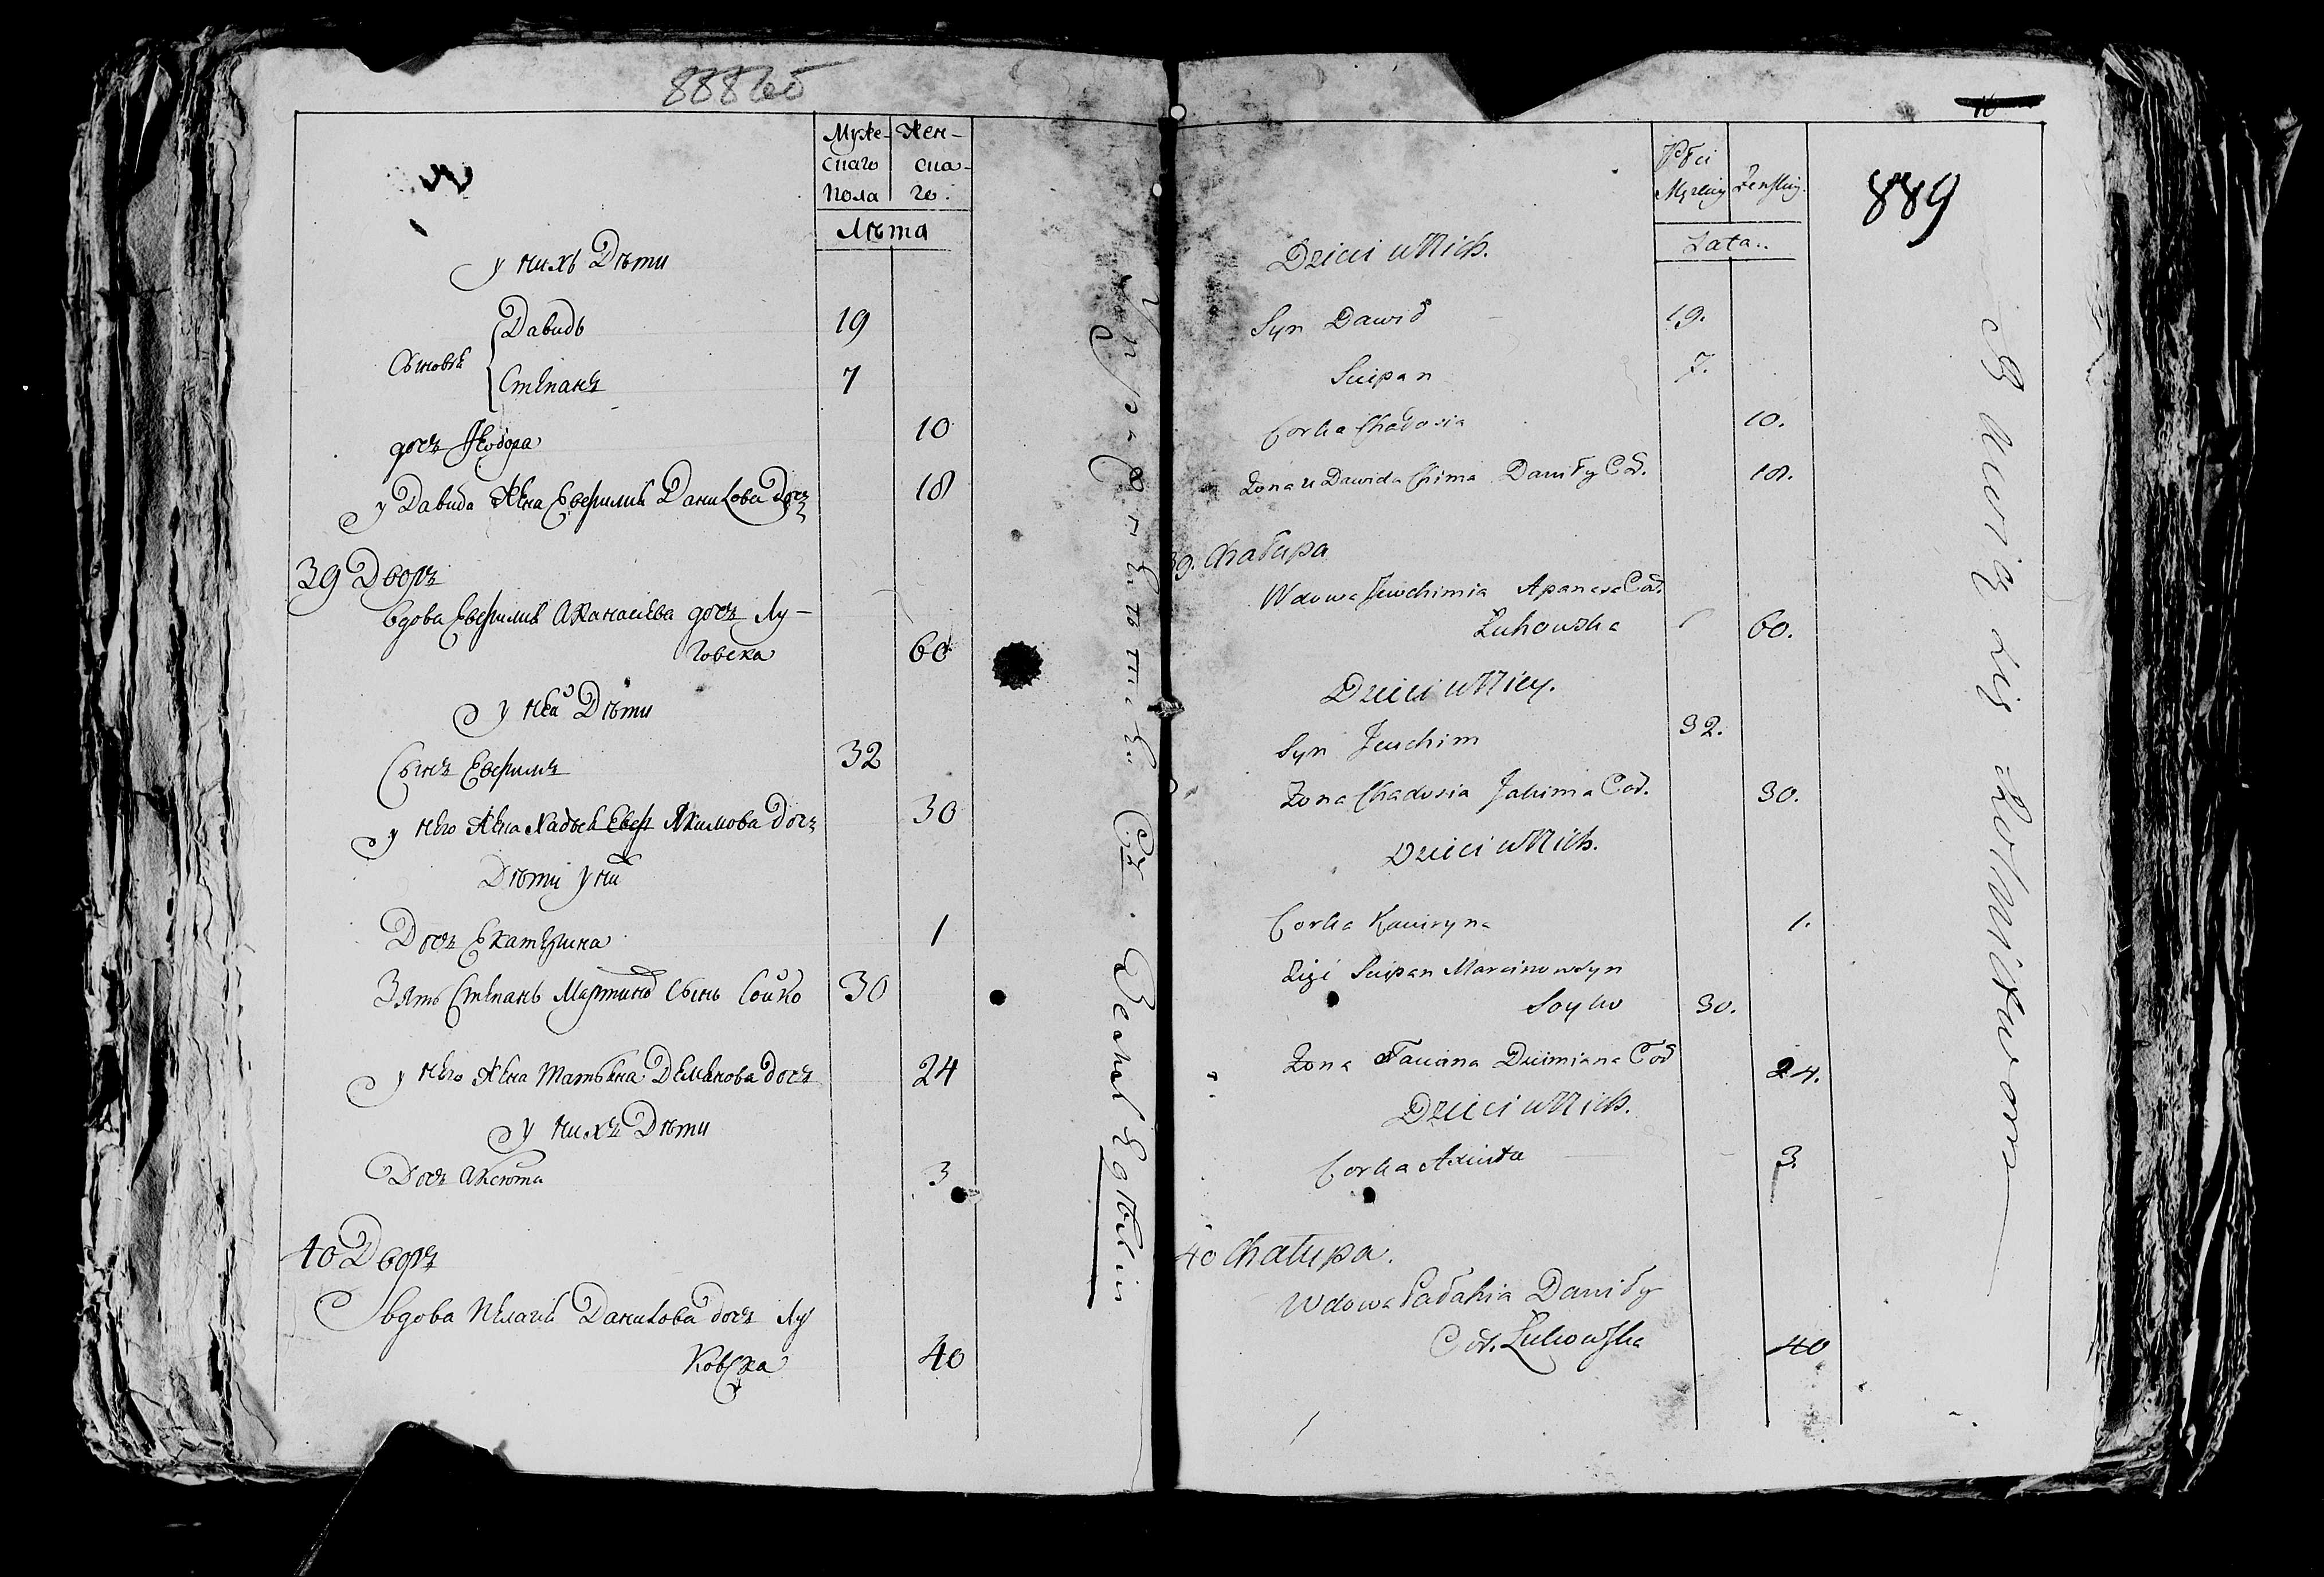 888об
Муже- Жен-
скаго ска-
пола го.
Лѣта
у нихъ Дѣти
Сыновья
Давидъ 19
Степанъ 7
дочъ Феодора 10
у Давида Жена Евфимия Данилова дочъ 18
39 Дворъ
вдова Евфимия Афанасиева дочъ Лу-
говска 60
у нея Дѣти
Сынъ Евфимъ 32
у него Жена Хадося Евф Якимова дочъ 30
Дѣти у них
Дочъ Екатерина 1
Зять Степанъ Мартинов Сынъ Сойко 30
у него Жена Татьяна Демянова дочъ 24
у нихъ Дѣти
Дочъ Аксюта 3
40 Дворъ
вдова Пелагия Данилова дочъ Лу
ковска 40
16
889
Płci
Męzkiey Żenskiey
Lata..
Dzieci u Nich.
Syn Dawid 19.
Sciepan 7.
Corka Chadosia 10.
Zona u Dawida Chima Daniły Cod. 18.
39. Chałupa
Wdowa Jewchimia Apanasa Cod.
Łukowska 60.
Dzieci u Niey.
Syn Jewchim 32.
Zona Chadosia Jakima Cod. 30.
Dzieci u Nich.
Corka Kaciryna 1.
Zięć Sciepan Marcinow Syn
Soyko 30.
Zona Taciana Dziemiana Cod 24.
Dzieci u Nich.
Corka Axiuta 3.
40 Chałupa.
Wdowa Pałahia Daniły
Cod. Łukowska 40